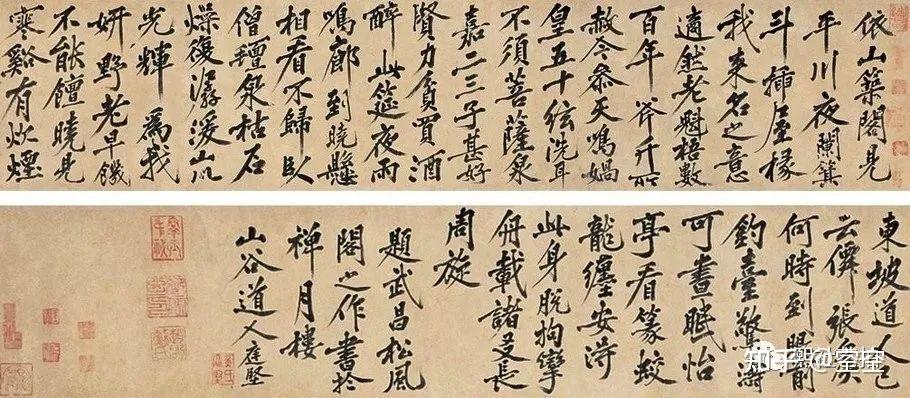 依山築閣見
平川夜闌箕
斗插屋椽
我來名之意
適然老魁梧數
百年斧斤所
赦令參天鳴媧
皇五十絃洗耳
不須菩薩泉
嘉二三子甚好
賢力貧買酒
醉此筵夜雨
鳴廊到曉懸
相看不歸臥
僧氊泉枯石
燥復潺湲山川
光輝為我
妍野老早饑
不能饘曉見
寒谿有炊煙
東坡道人已
張侯
何時到眼前
釣臺驚濤
可晝眠怡
亭看篆蛟
龍纏安得
此身脫拘攣
舟載諸友長
周旋
題武昌松風
閣之作書於
禪月樓
山谷道人庭堅
知乎